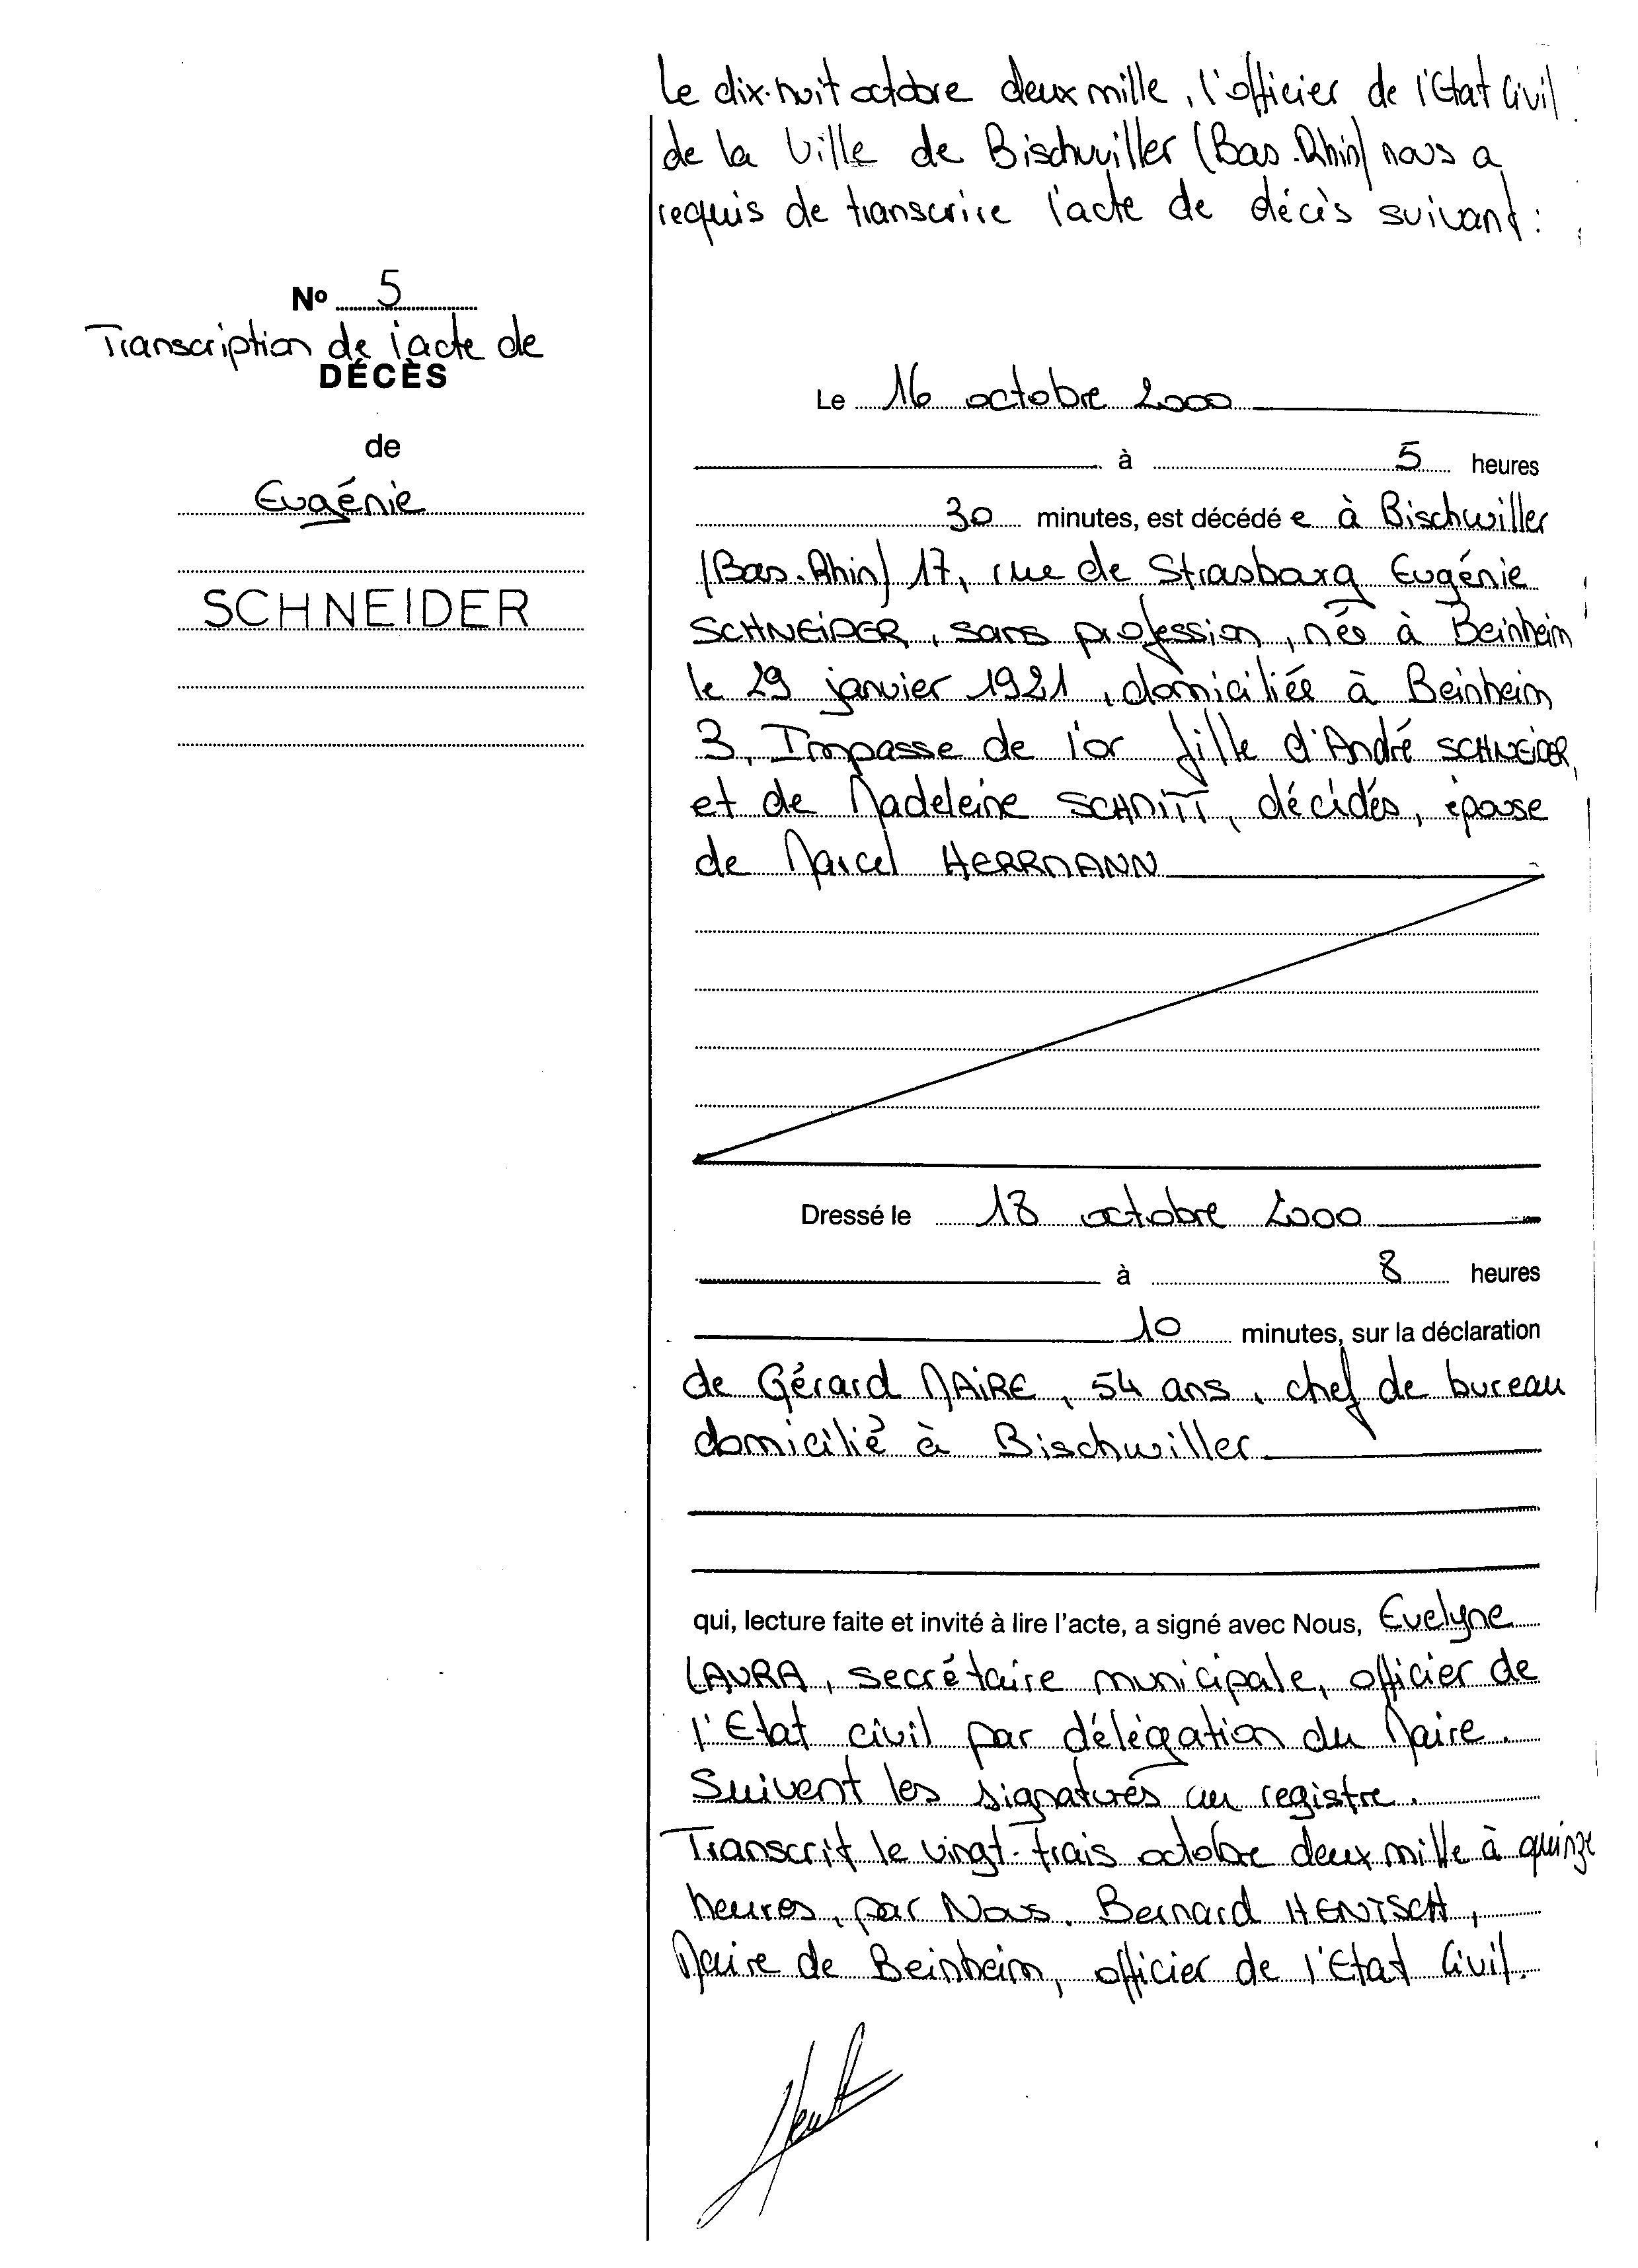 Le dix-huit octobre deux mille, l'officier de l'Etat Civil
de la Ville de Bischwiller (Bas-Rhin) nous a
requis de transcrire l'acte de décès suivant :
Nº 5
Transcription de l'acte de
DÉCÈS
de
Eugénie
SCHNEIDER
Le 16 octobre 2000
à 5 heures
30 minutes, est décédé e à Bischwiller
(Bas-Rhin) 17, rue de Strasbourg Eugénie
SCHNEIDER, sans profession, née à Beinheim
le 29 janvier 1921, domiciliée à Beinheim
3, Impasse de l'or fille d'André SCHNEIDER,
et de Madeleine SCHMITT, décédés, épouse
de Marcel HERRMANN
Dressé le 18 octobre 2000
à 8 heures
10 minutes, sur la déclaration
de Gérard MAIRE, 54 ans, chef de bureau
domicilié à Bischwiller
qui, lecture faite et invité à lire l'acte, a signé avec Nous, Evelyne
LAURA, secrétaire municipale, officier de
l'Etat civil par délégation du Maire.
Suivent les signatures au registre.
Transcrit le vingt-trois octobre deux mille à quinze
heures, par Nous, Bernard HENTSCH,
Maire de Beinheim, officier de l'Etat Civil.